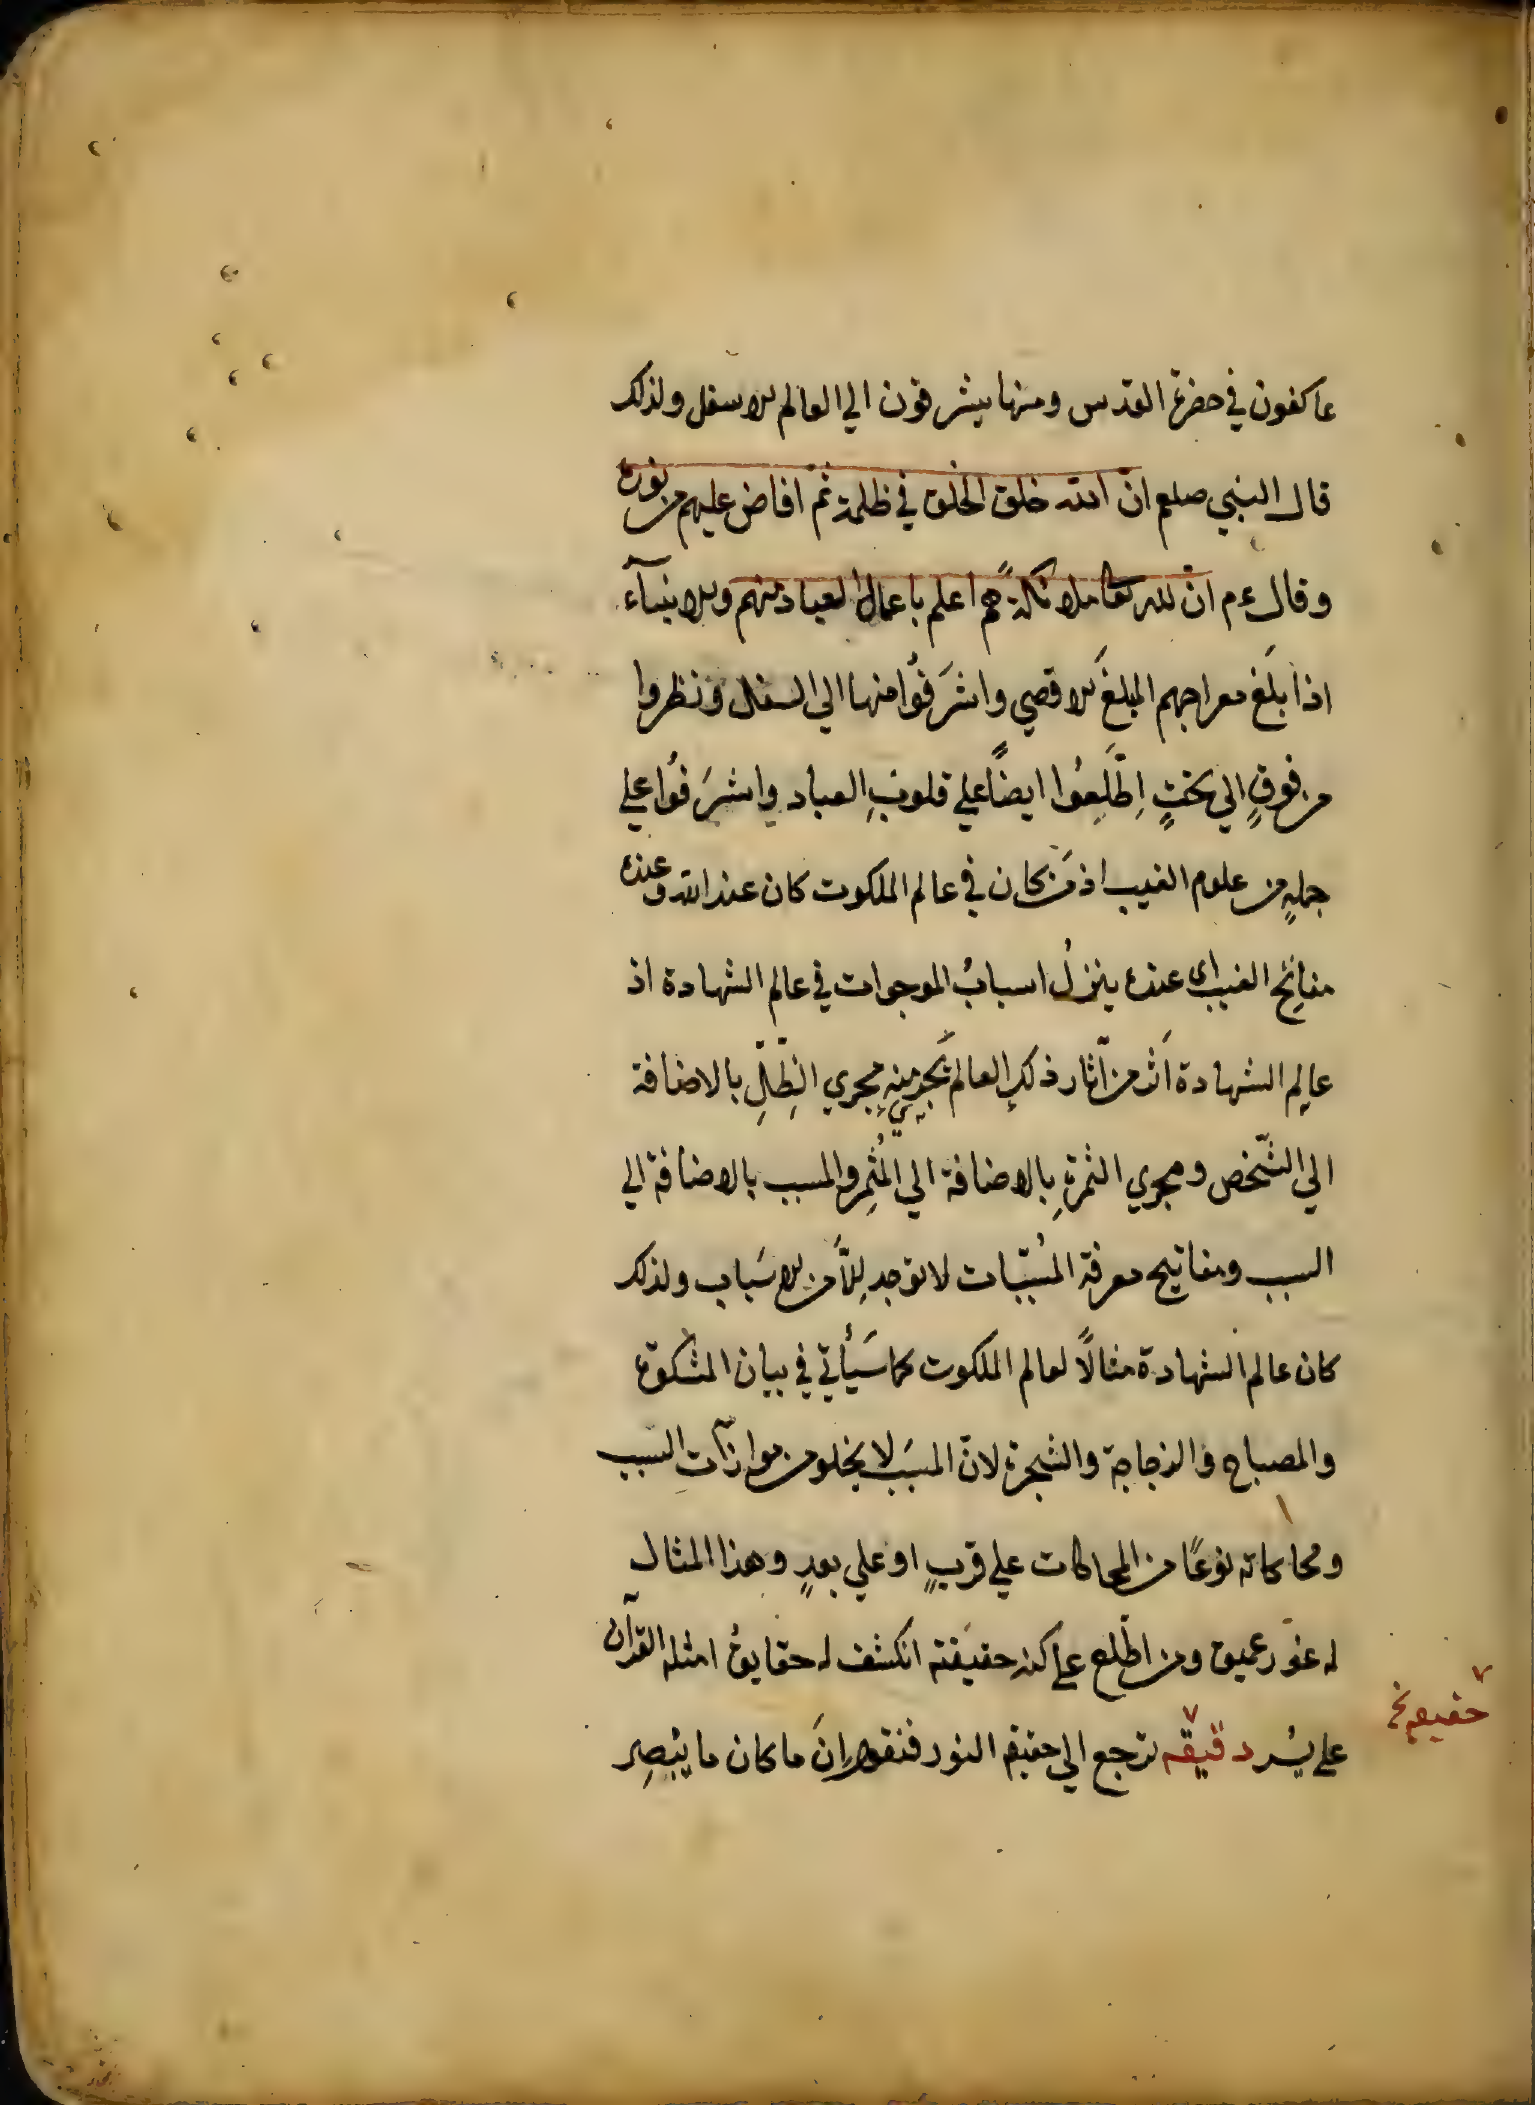 عاكفون في حضرة القدس ومنها يشرفون الي العالم الاسفل ولذلك
قال النبي صلعم انّ الله خلق الخلق في ظلمة ثم افاض عليهم من نوره
وقال ءم انّ لله تعا ملائكةً هم اعلم باعمال العباد منهم والانبيآء
اذا بَلَغ معراجهم المبلغَ الاقصي واشرَفُوا منها الي السفل ونظروا
من فوقٍ الي تحتٍ اِطَّلَعُوا ايضًا علي قلوبِ العباد واشرَفُوا علي
جملةٍ من علوم الغيب اذ مَن كان في عالم الملكوت كان عند الله وعنده
مفاتِح الغيب اي عنده ينزلُ اسبابُ الموجوات في عالم الشهادة اذ
عالم الشهادة اَثر من آثار ذلك العالم يَجري مِنه مجري الظِّلِّ بالاضافة
الي الشّخص ومجري الثمرةِ بالاضافة الي المُثمِر والمسبب بالاضافة الي
السبب ومفاتيح معرفة المُسبّبات لا توجد اِلّا من الاسَباب ولذلك
كان عالم الشهادة مثالًا لعالم الملكوت كما سَيَأتي في بيان المشكوة
والمصباح والزجاجة والشجرة لانّ المسبَب لا يخلو من موازآت السبب
ومحاكاته نوعًا من المحاكات علي قربٍ او علي بعدٍ وهذا المثال
له غور عميق ومن اطّلع علي كنه حقيقته انكشف له حقايق امثلة القرآن
علي يُسر دقيقه ترجع الي حقيقة النور فنقول اِنَ ما كان ما يُبصِر
حقيقة نخ